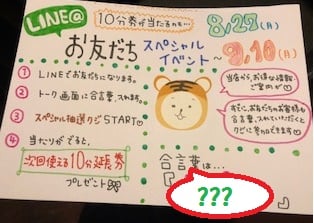 LINE@
10分券が当たるかも…
お友だち
スペシャル
イベント
8/29(月)
～
9/10(月)
① LINEでお友だちになります。
② トーク画面に合言葉、入れます。
③ スペシャル抽選クジSTART♡
④ 当たりがでると、
次回使える10分延長券
プレゼント
当店から、お得な情報
ご案内が♡
すでに、お友だちのお客様も
合言葉、入れていただくと
クジに参加できます♡
合言葉は…
『
???
』